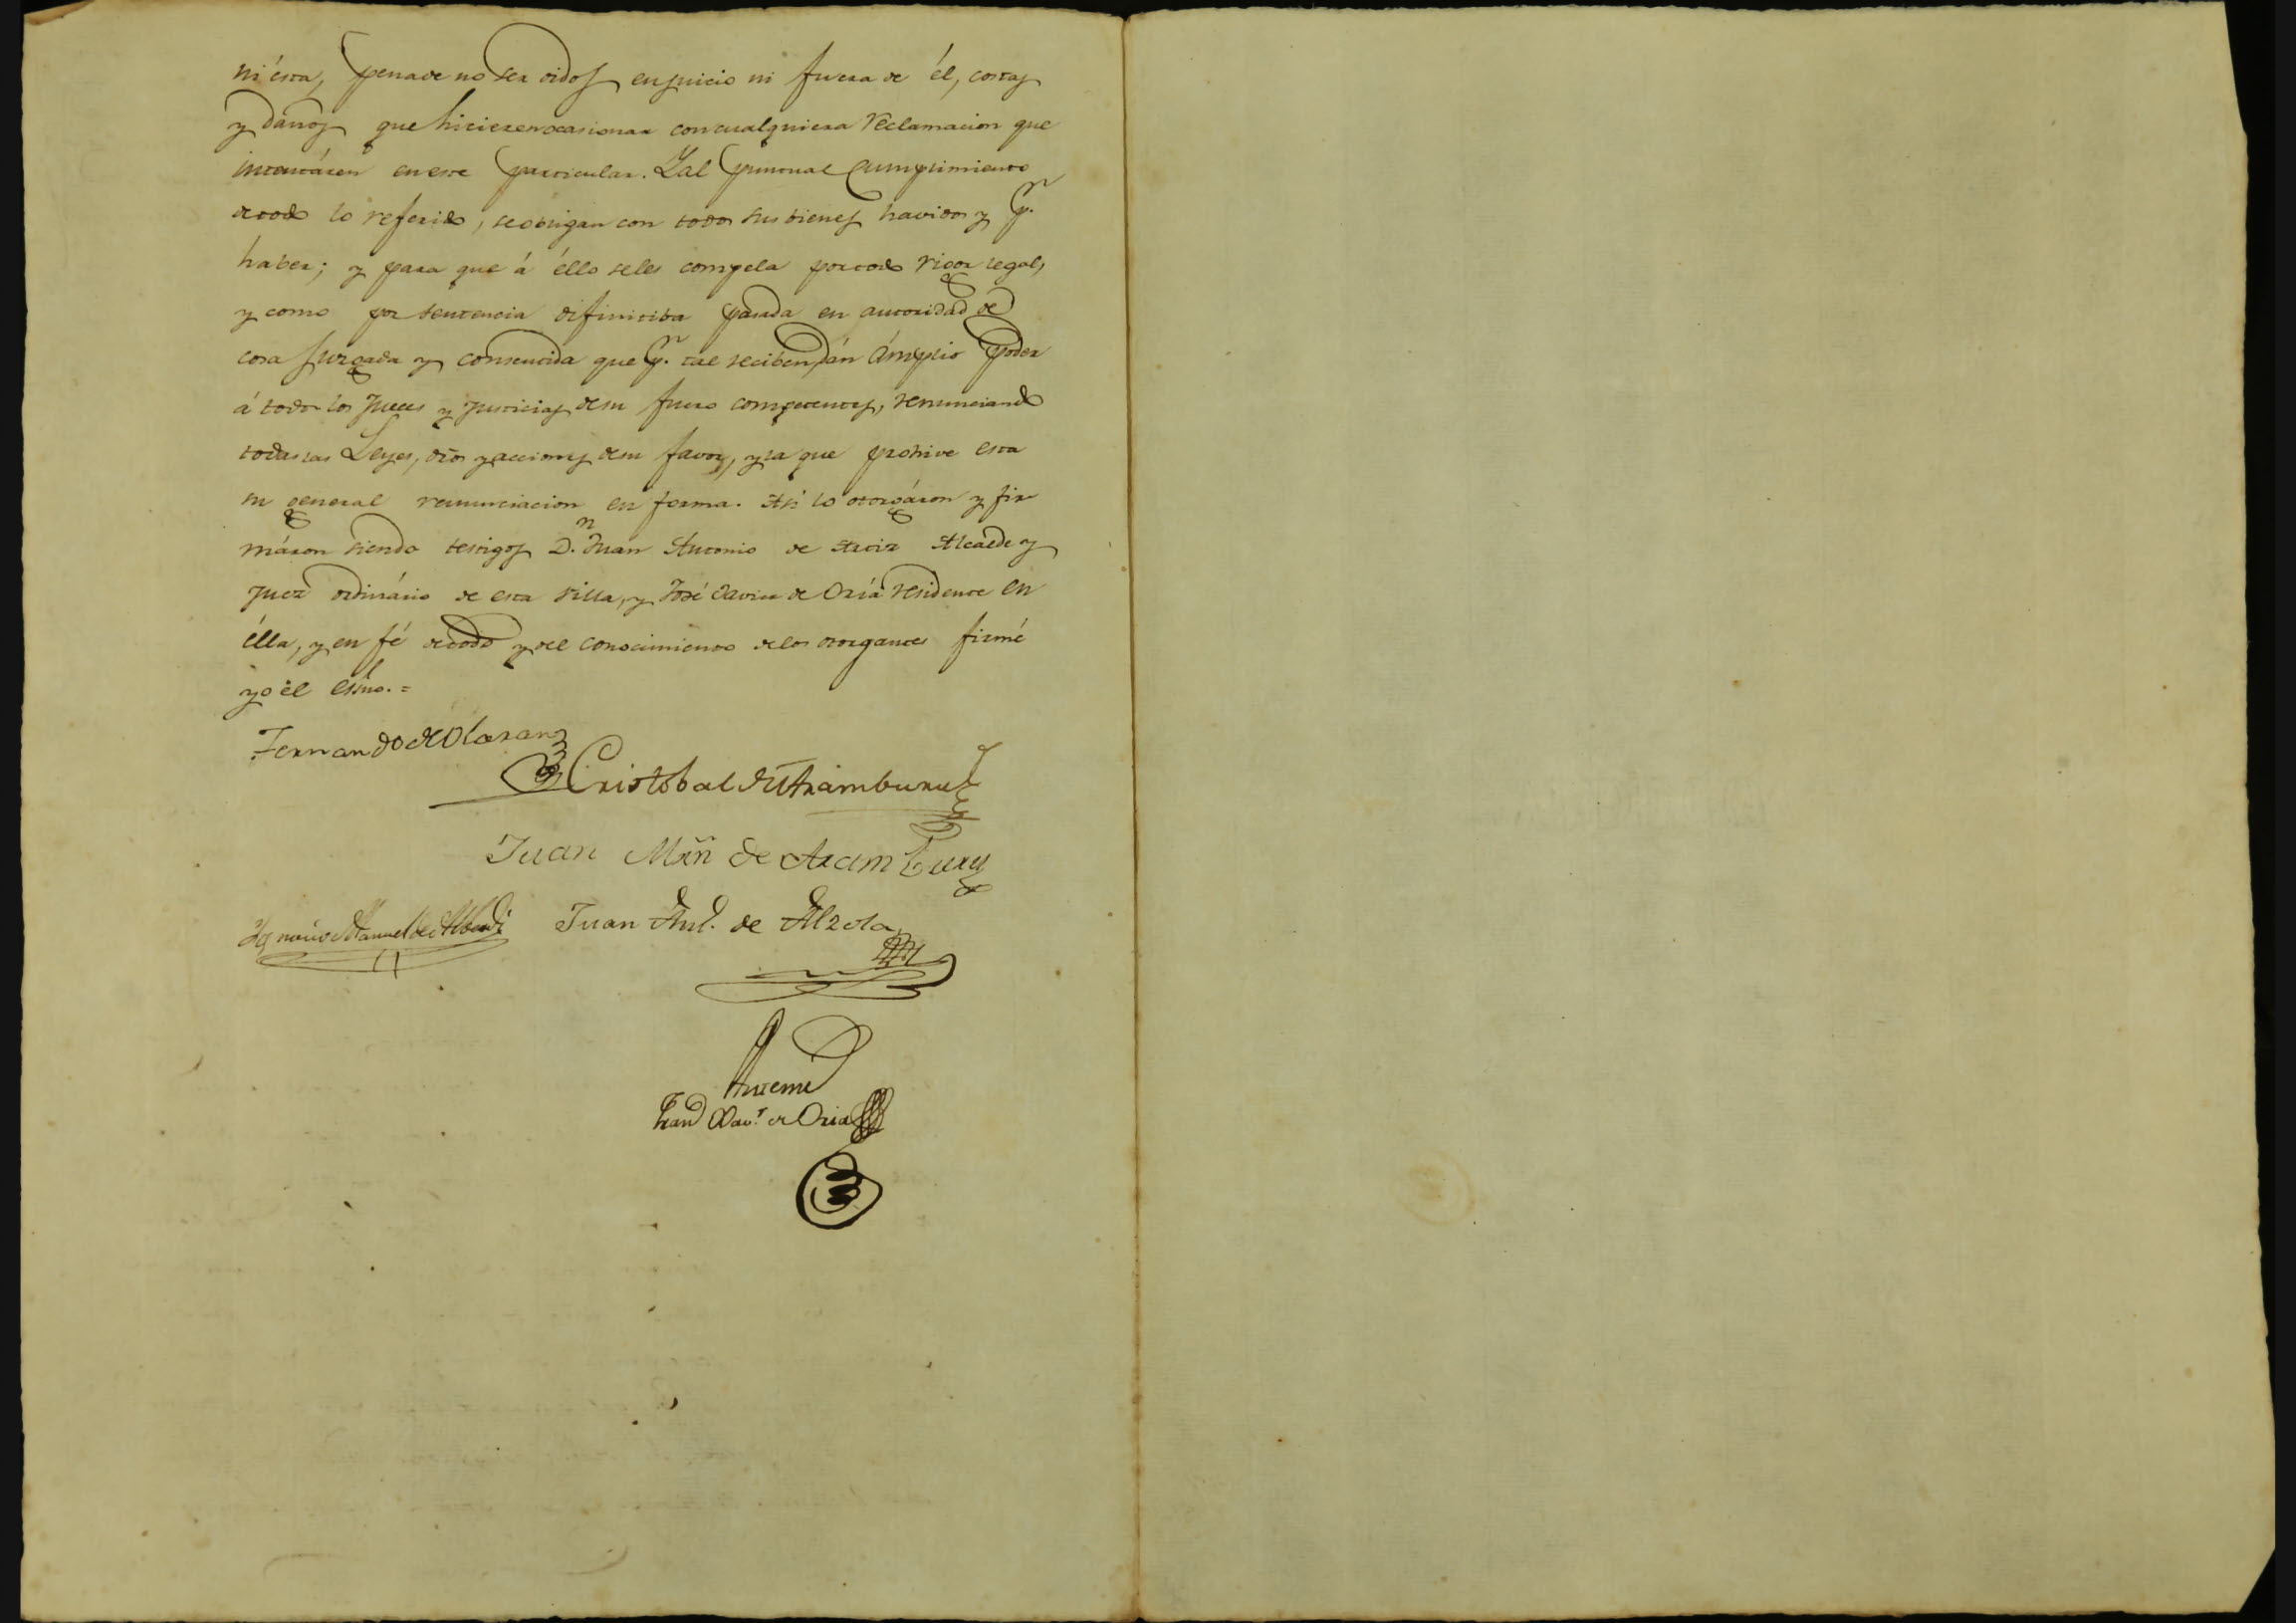 ni ésta, pena de no ser oidos en juicio ni fuera de él, costas
y daños que hicieren ocasionar con cualquiera reclamacion que
intentáren en este particular. Y al puntual cumplimiento
de todo lo referido, se obligan con todos sus bienes havidos y pr.
haber; y para que á éllo se les compela por todo rigor legal,
y como por sentencia difinitiba pasada en autoridad de
cosa juzgada y consentida que pr. tal reciben, dán ámplio poder
á todos los Jueces y Justicias de su fuero competentes, renunciando
todas las Leyes, dros y acciones de su favor, y la que prohive esta
su general renunciacion en forma. Asi lo otorgáron y fir
máron siendo testigos Dn. Juan Antonio de Alcalde y
Juez ordinário de esta villa, y José Xavier de Oria residente en
élla, y en fé de todo y del conocimiento de los otorgantes firmé
yo el essno. =
Fernando de Olaran
Cristobal de Aramburu
Juan Mrñ de Aramburu
Ygnacio Manuel de Alberdi Juan Ant. de Alzola
Antemi
Xavr. de Oria